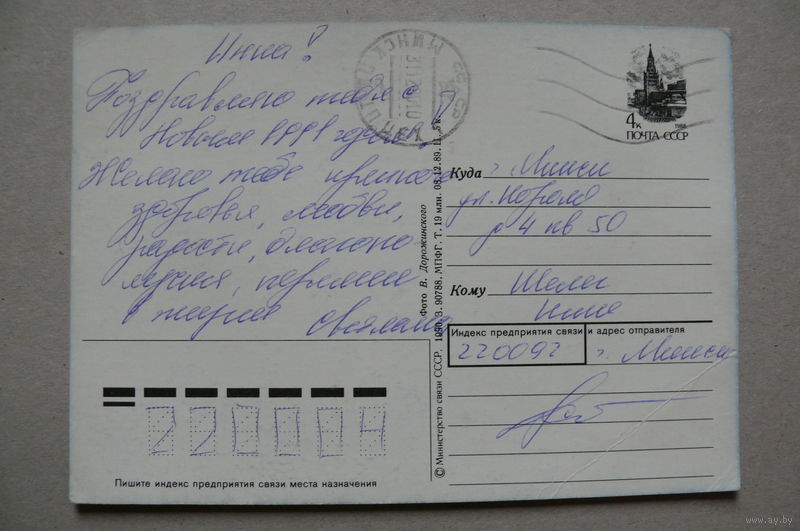 Инна!
Поздравляю тебя с
Новым 1991 годом!
Желаю тебе крепкого
здоровья, любви,
радости, благопо
лучия, перемен
в жизни Светлана
МИНСК
4к
1988
ПОЧТА СССР
Куда г. Минск
ул. Короля
д 4 кв 50
Кому
Инне
Индекс предприятия связи и адрес отправителя
220092 г. Минск
220004
Пишите индекс предприятия связи места назначения
© Министерство связи СССР, 1990. З. 90788. МПФГ. Т. 19 млн. 05.12.89. Ц. 5 к.
Фото В. Дорожинского
www.ay.by